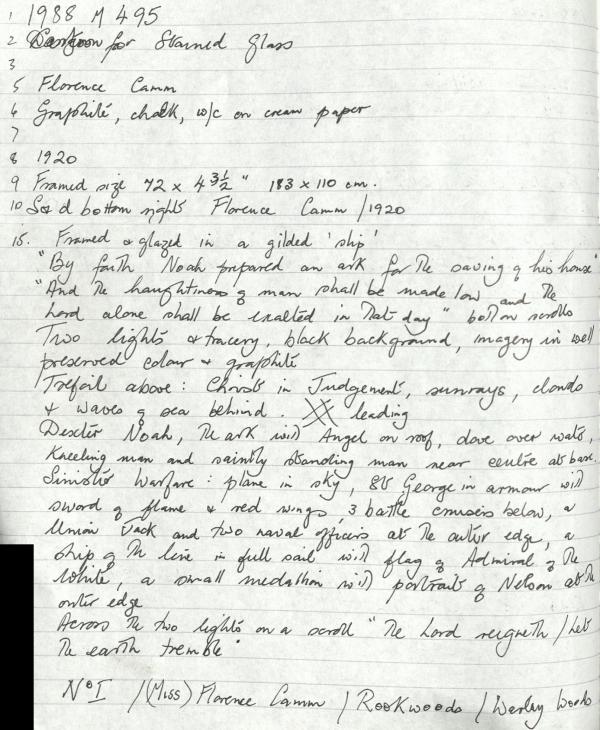 1 1988 M 495
2 Cartoon for Stained Glass
3
5 Florence Camm
6 Graphite, chalk, w/c on cream paper
7
8 1920
9 Framed size 72 x 43½" 183 x 110 cm.
10 Sgd bottom right Florence Camm / 1920
15. Framed & glazed in a gilded 'slip'
"By faith Noah prepared an ark for the saving of his house"
"And the haughtiness of man shall be made low and the
Lord alone shall be exalted in that day" both on scrolls
Two lights & tracery, black background, imagery in well
preserved colour & graphite
Trefoil above: Christ in Judgement, sunrays, clouds
& waves of sea behind. leading
Dexter Noah, the ark with Angel on roof, dove over water,
kneeling man and saintly standing man near centre at base.
Sinister Warfare: plane in sky, St George in armour with
sword of flame & red wings, 3 battle cruisers below, a
Union Jack and two naval officers at the outer edge, a
ship of the line in full sail with flag of Admiral of the
White, a small medallion with portrait of Nelson at the
outer edge
Across the two lights on a scroll "The Lord reigneth / Let
the earth tremble"
No I / (Miss) Florence Camm / Rookwoods / Warley Woods